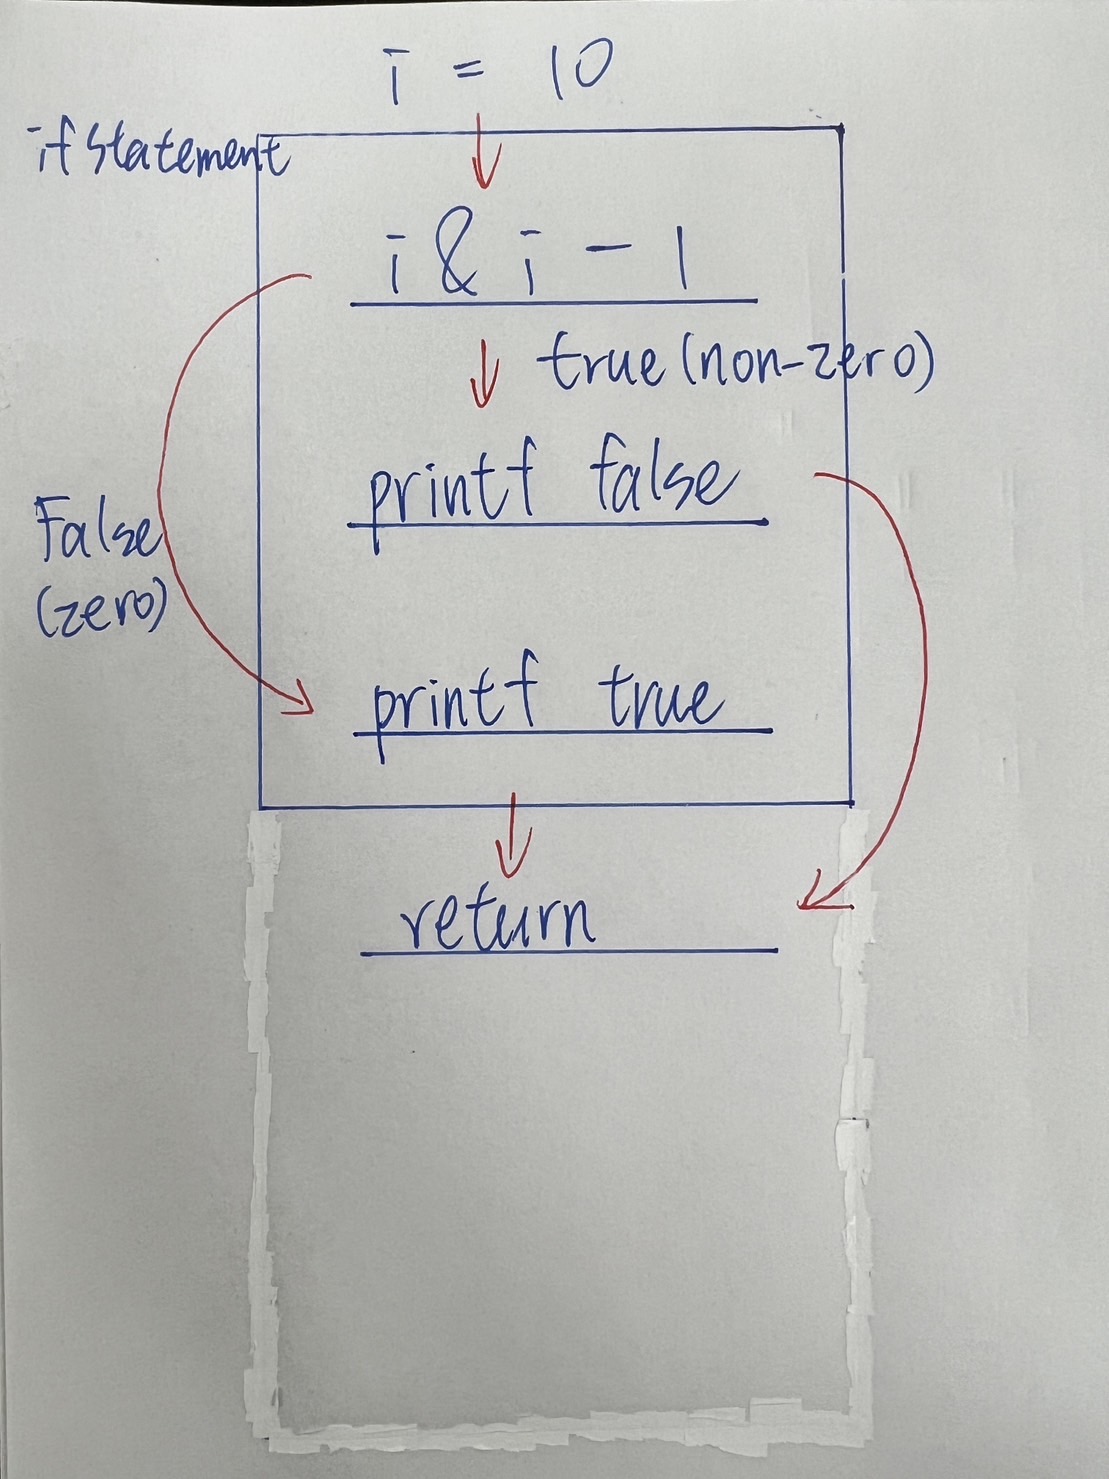 i = 10
if statement
i & i - 1
true (non-zero)
printf false
False
(zero)
printf true
return